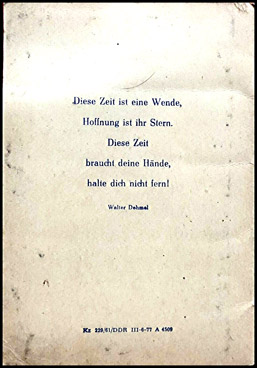 Diese Zeit ist eine Wende,
Hoffnung ist ihr Stern.
Diese Zeit
braucht deine Hände,
halte dich nicht fern!
Walter Dehmel
Kz 220/61/DDR III-6-77 A 4509